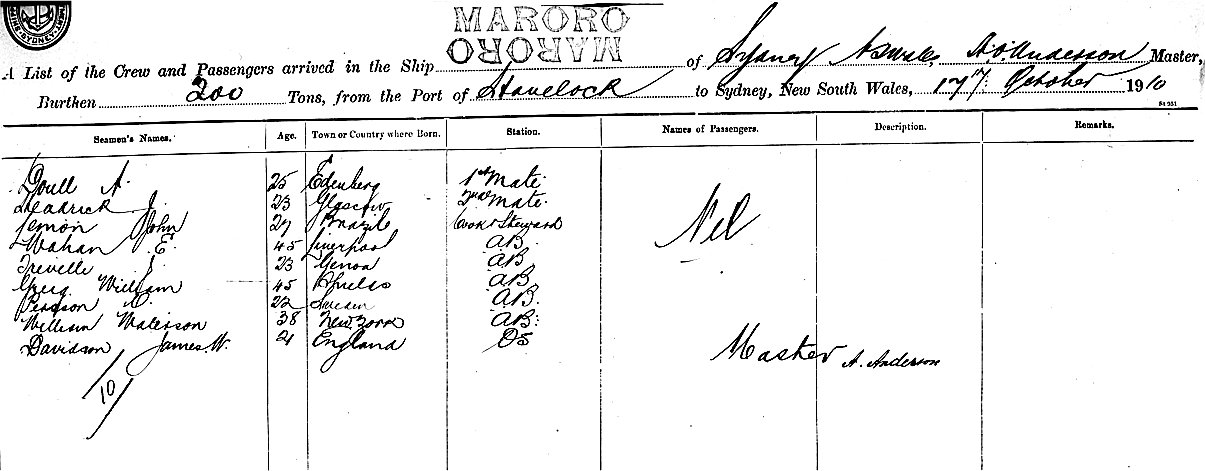 SYDNEY
MARORO
MARORO
A List of the Crew and Passengers arrived in the Ship of Sydney N S Wales, Anderson Master,
Burthen 200 Tons, from the Port of Havelock to Sydney, New South Wales, 17th: October 1910
Seamen's Names. Age. Town or Country where Born. Station. Names of Passengers. Description. Remarks.
Doull A. 25 Edenberg 1st Mate
Headrick J. 23 Glascow 2nd Mate
Lemon John 27 Brazile Cook & Steward
Mahan E. 45 Liverpool AB
Nil
Treville J 23 Genoa AB
Greig William 45 AB
Pearson 22 Sweden AB.
William Waterson 38 New York AB:
Davidson James W. 21 England OS
Master A. Anderson
10